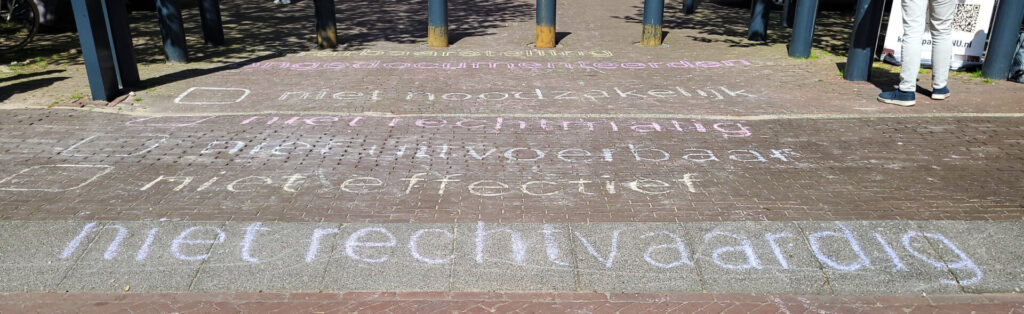 ongedocumenteerden
niet noodzakelijk
niet rechtmatig
niet uitvoerbaar
niet effectief
niet rechtvaardig
NU.nl